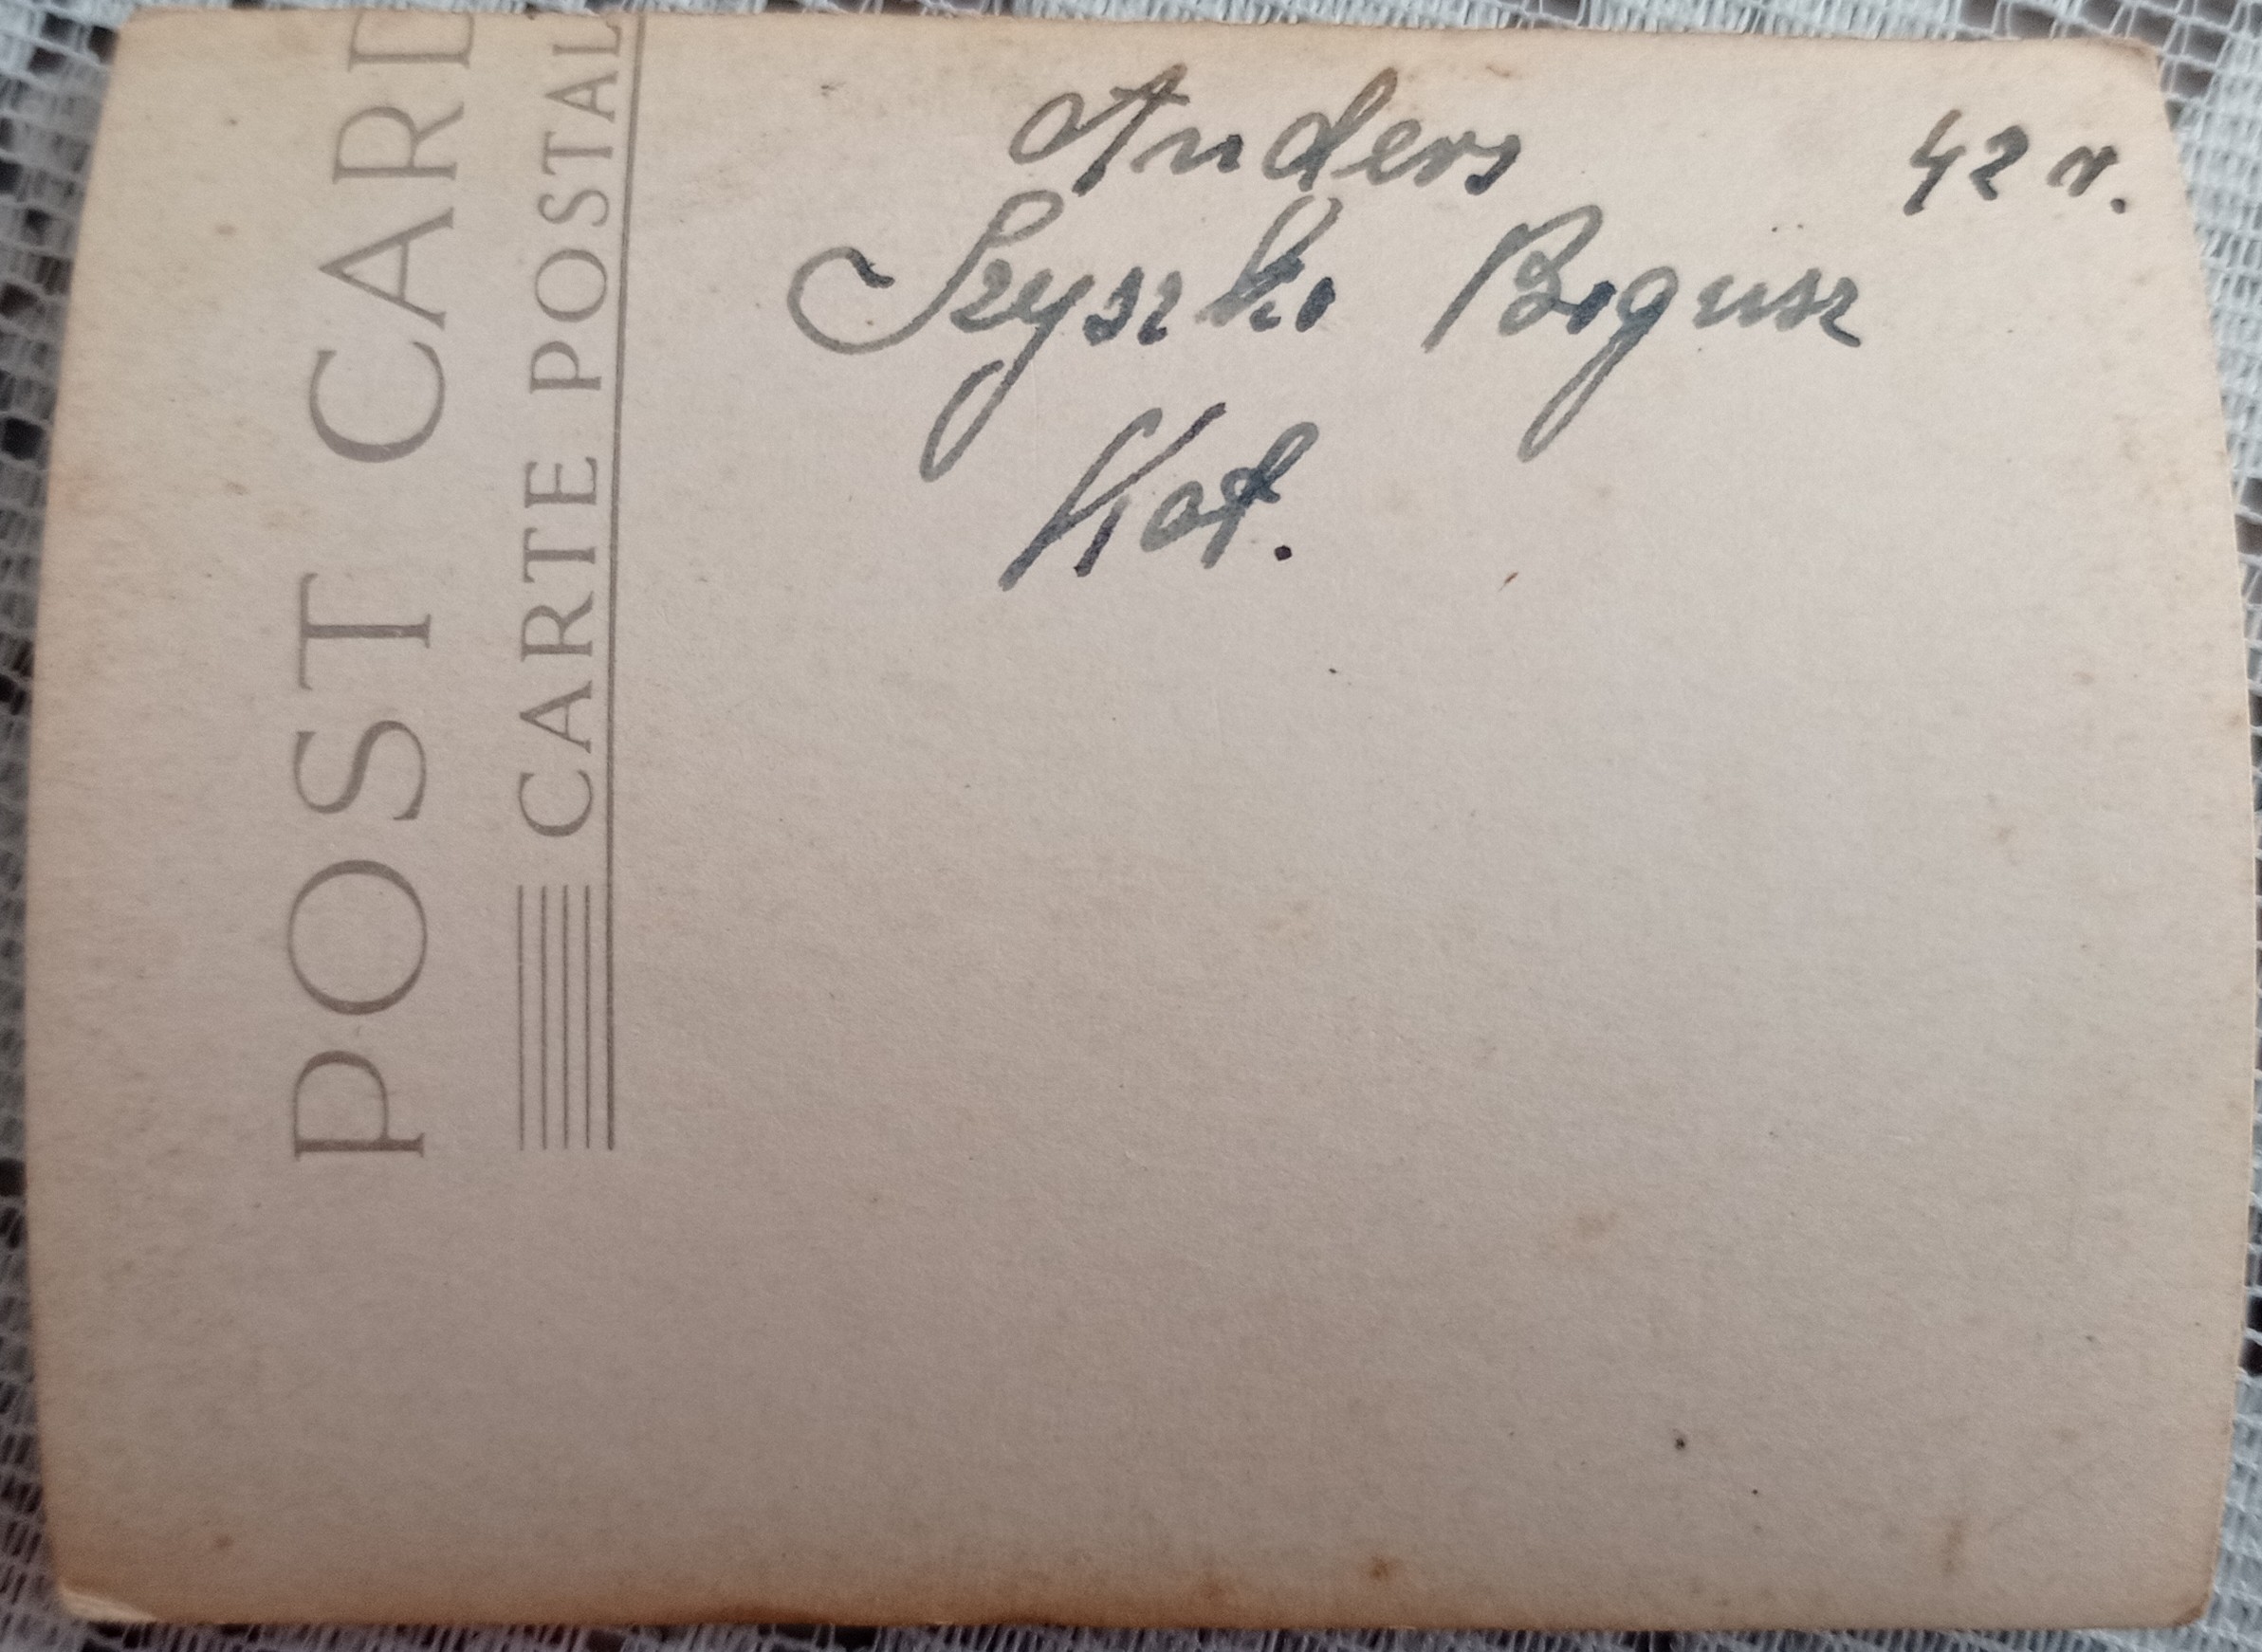 POST CARD
CARTE POSTAL
Anders 42 r.
Szyszko Bogusz
Kot.